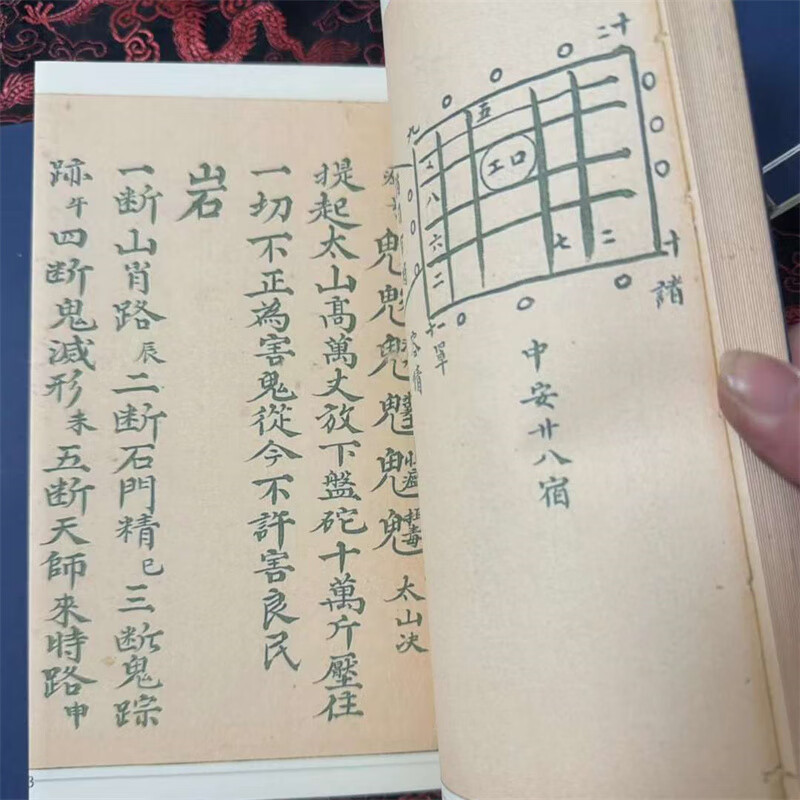 十二
九
五
工口
八
六
七
二
二
十
十一
單
諸
中安廿八宿
太山决
提起太山高萬丈放下盤砣十萬斤壓住
一切不正為害鬼從今不許害良民
山石
一断山肖路辰二断石門精巳三断鬼踪
跡午四断鬼滅形未五断天師來時路申
3